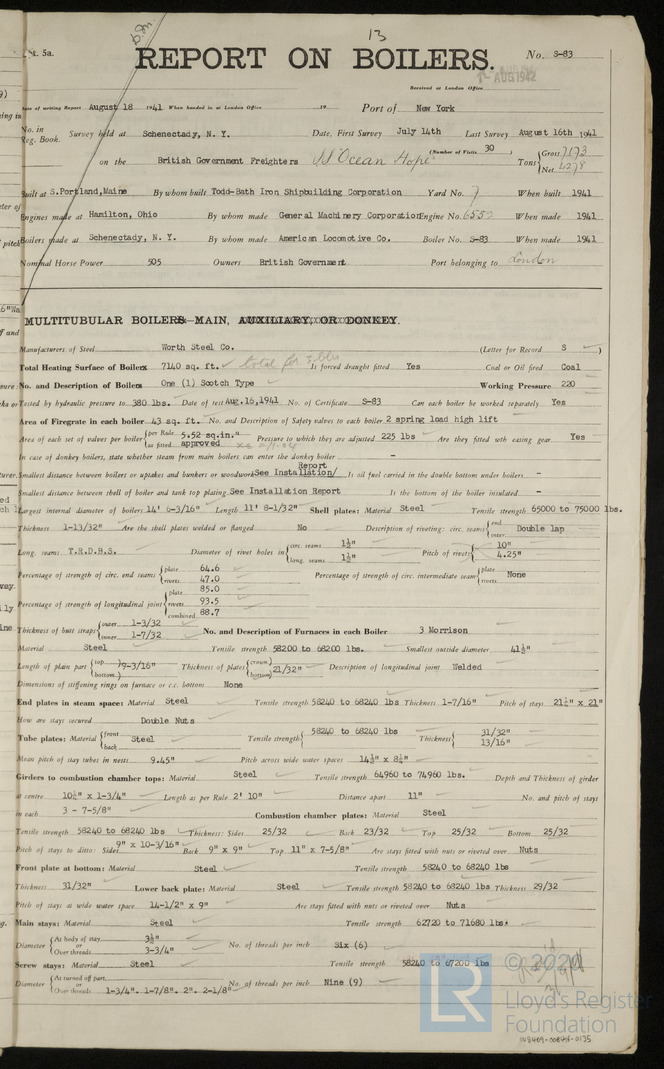 13
Rpt. 5a.
REPORT ON BOILERS.
No. S-83
Received at London Office
AUG 1942
Date of writing Report August 18 1941 When handed in at London Office 19 Port of New York
No. in Reg. Book. Survey held at Schenectady, N. Y. Date, First Survey July 14th Last Survey August 16th 1941
(Number of Visits 30 )
on the British Government Freighters SS "Ocean Hope" Tons { Gross 7173 Net 4278
Built at S.Portland,Maine By whom built Todd-Bath Iron Shipbuilding Corporation Yard No. 7 When built 1941
Engines made at Hamilton, Ohio By whom made General Machinery Corporation Engine No. 6552 When made 1941
Boilers made at Schenectady, N. Y. By whom made American Locomotive Co. Boiler No. S-83 When made 1941
Nominal Horse Power 505 Owners British Government Port belonging to London
MULTITUBULAR BOILERS – MAIN, AUXILIARY, OR DONKEY.
Manufacturers of Steel Worth Steel Co. (Letter for Record S )
Total Heating Surface of Boilers 7140 sq. ft. total for 3 blrs Is forced draught fitted Yes Coal or Oil fired Coal
No. and Description of Boilers One (1) Scotch Type Working Pressure 220
Tested by hydraulic pressure to 380 lbs. Date of test Aug.16,1941 No. of Certificate S-83 Can each boiler be worked separately Yes
Area of Firegrate in each boiler 43 sq. ft. No. and Description of Safety valves to each boiler 2 spring load high lift
Area of each set of valves per boiler { per Rule 5.52 sq.in." as fitted approved Pressure to which they are adjusted 225 lbs Are they fitted with easing gear Yes
In case of donkey boilers, state whether steam from main boilers can enter the donkey boiler -
Smallest distance between boilers or uptakes and bunkers or woodwork See Installation/ Report Is oil fuel carried in the double bottom under boilers -
Smallest distance between shell of boiler and tank top plating See Installation Report Is the bottom of the boiler insulated -
Largest internal diameter of boilers 14' 6-3/16" Length 11' 8-1/32" Shell plates: Material Steel Tensile strength 65000 to 75000 lbs.
Thickness 1-13/32" Are the shell plates welded or flanged No Description of riveting: circ. seams { end Double lap inter.
Long. seams T.R.D.B.S. Diameter of rivet holes in { circ. seams 1½" long. seams 1½" Pitch of rivets { 10" 4.25"
Percentage of strength of circ. end seams { plate 64.6 rivets 47.0 Percentage of strength of circ. intermediate seam { plate rivets None
Percentage of strength of longitudinal joint { plate 85.0 rivets 93.5 combined 88.7
Thickness of butt straps { outer 1-3/32 inner 1-7/32 No. and Description of Furnaces in each Boiler 3 Morrison
Material Steel Tensile strength 58200 to 68200 lbs. Smallest outside diameter 41½"
Length of plain part { top bottom } 9-3/16" Thickness of plates { crown bottom } 21/32" Description of longitudinal joint Welded
Dimensions of stiffening rings on furnace or c.c. bottom None
End plates in steam space: Material Steel Tensile strength 58240 to 68240 lbs Thickness 1-7/16" Pitch of stays 21½" x 21"
How are stays secured Double Nuts
Tube plates: Material { front back Steel Tensile strength { 58240 to 68240 lbs Thickness { 31/32" 13/16"
Mean pitch of stay tubes in nests 9.45" Pitch across wide water spaces 14½" x 8¼"
Girders to combustion chamber tops: Material Steel Tensile strength 64960 to 74960 lbs. Depth and Thickness of girder
at centre 10¼" x 1-3/4" Length as per Rule 2' 10" Distance apart 11" No. and pitch of stays
in each 3 - 7-5/8" Combustion chamber plates: Material Steel
Tensile strength 58240 to 68240 lbs Thickness: Sides 25/32 Back 23/32 Top 25/32 Bottom 25/32
Pitch of stays to ditto: Sides 9" x 10-3/16" Back 9" x 9" Top 11" x 7-5/8" Are stays fitted with nuts or riveted over Nuts
Front plate at bottom: Material Steel Tensile strength 58240 to 68240 lbs
Thickness 31/32" Lower back plate: Material Steel Tensile strength 58240 to 68240 lbs Thickness 29/32
Pitch of stays at wide water space 14-1/2" x 9" Are stays fitted with nuts or riveted over Nuts
Main stays: Material Steel Tensile strength 62720 to 71680 lbs.
Diameter { At body of stay 3½" or Over threads 3-3/4" No. of threads per inch Six (6)
Screw stays: Material Steel Tensile strength 58240 to 67200 lbs
Diameter { At turned off part or Over threads 1-3/4". 1-7/8". 2". 2-1/8" No. of threads per inch Nine (9)
© 2020
LR
Lloyd's Register
Foundation